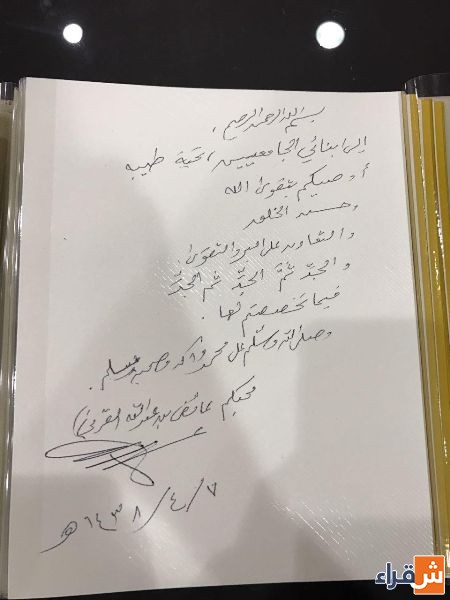 بسم الله الرحمن الرحيم،
إلى أبنائي الجامعيين، تحية طيبه
أوصيكم بتقوى الله
وحسن الخلق
والتعاون على البر والتقوى.
والجدَّ ثمَّ الجدَّ ثم الجدَّ
فيما تخصصتم لها.
وصلى الله وسلم على محمد وآله وصحبه وسلم.
محبكم عائض بن عبدالله القرني
٧/٤/١٤٣٨هـ
شقراء